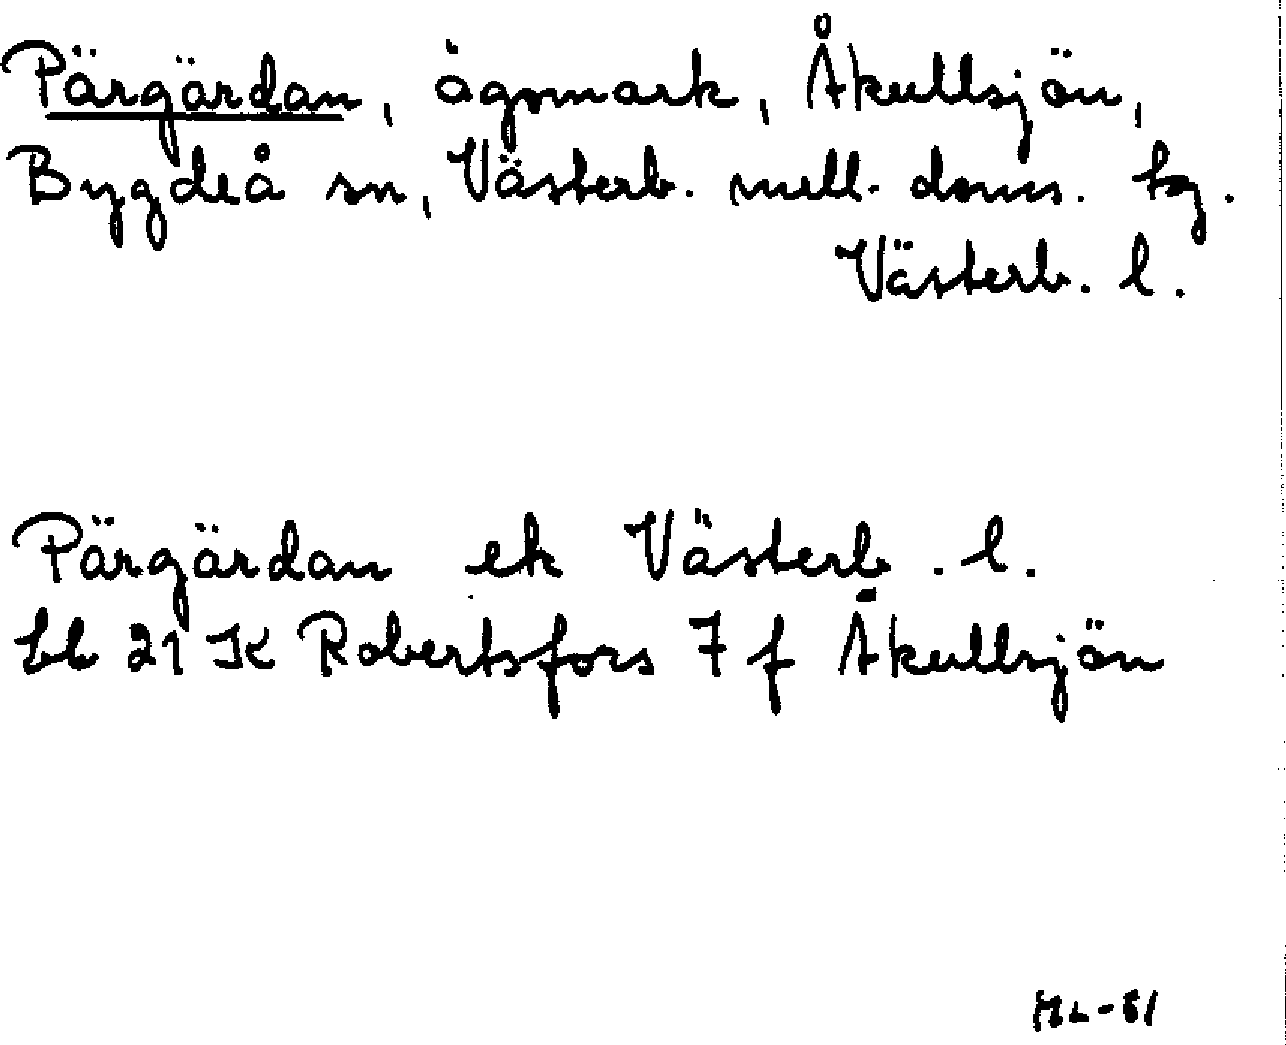 Pärgärdan, ägomark, Åkullsjön,
Bygdeå sn, Västerb. mell. doms. tg.
Västerb. l.
Pärgärdan ek Västerb. l.
bl 21 K Robertsfors 7 f Åkullsjön